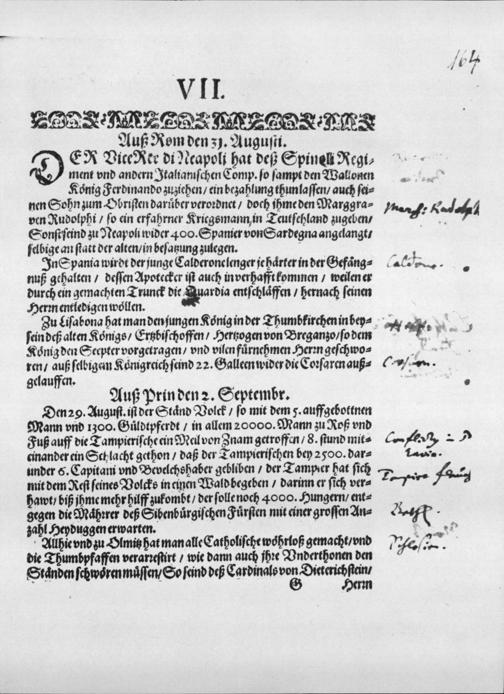 164
VII.
Auß Rom den 31. Augusti.
DER ViceRer di Neapoli hat deß Spinelli Regi-
ment und andern Italianischen Comp. so sampt den Wallonen
König Ferdinando zuziehen / ein bezahlung thun lassen / auch sei-
nen Sohn zum Obristen darüber verordnet / doch ihme den Marggra-
ven Rudolphi / so ein erfahrner Kriegsmann, in Teutschland zugeben /
Sonst seind zu Neapoli wider 400. Spanier von Sardegna angelangt /
selbige an statt der alten / in besatzung zulegen.
In Spania wirdt der junge Calderone lenger je härter in der Gefäng-
nuß gehalten / dessen Apotecker ist auch in verhafft kommen / weilen er
durch ein gemachten Trunck die Quardia entschläffen / hernach seinen
Herrn entledigen wöllen.
Zu Lisabona hat man den jungen König in der Thumbkirchen in bey-
sein deß alten Königs / Ertzbischoffen / Hertzogen von Breganzo / so dem
König den Scepter vorgetragen / und vilen fürnehmen Herrn geschwo-
ren / auß selbigem Königreich seind 22. Galleen wider die Corsaren auß-
gelauffen.
Auß Prin den 2. Septembr.
Den 29. August. ist der Ständ Volck / so mit dem 5. auffgebottnen
Mann und 1300. Güldtpferdt / in allem 20000. Mann zu Roß und
Fuß auff die Tampierische ein Meil von Znam getroffen / 8. stund mit-
einander ein Schlacht gethon / daß der Tampierischen bey 2500. dar-
under 6. Capitani und Bevelchshaber gebliben / der Tampier hat sich
mit dem Rest seines Volcks in einen Wald begeben / darinn er sich ver-
hawt / biß ihme mehr hilff zukombt / der solle noch 4000. Hungern / ent-
gegen die Mährer deß Sibenbürgischen Fürsten mit einer grossen An-
zahl Heyduggen erwarten.
Allhie und zu Olmitz hat man alle Catholische wöhrloß gemacht / und
die Thumbpfaffen verarrestirt / wie dann auch ihre Underthonen den
Ständen schwören müssen / So seind deß Cardinals von Dieterichstein /
G Herrn